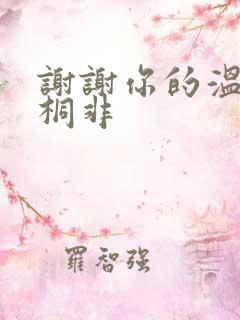 謝謝你的溫
桐非
羅智強